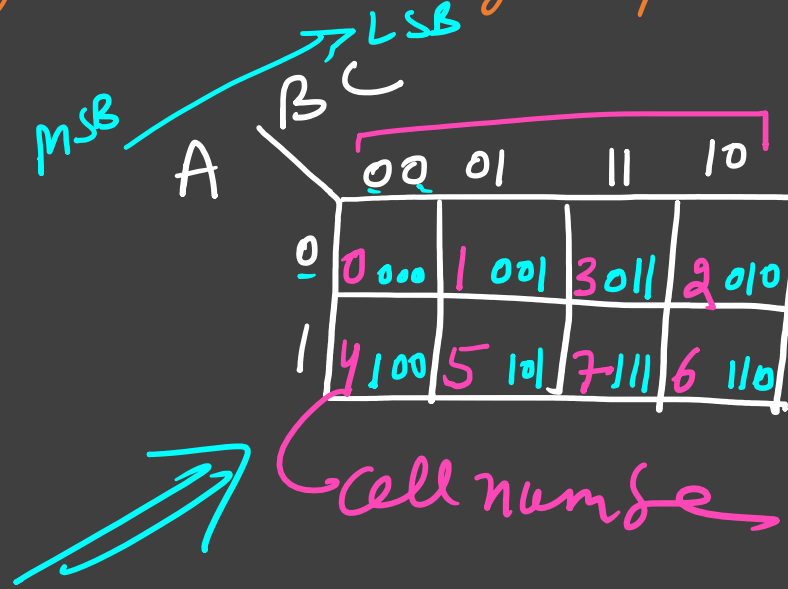 LSB
MSB
A
B C
00 01 11 10
0 0 000 1 001 3 011 2 010
1 4 100 5 101 7 111 6 110
cell number